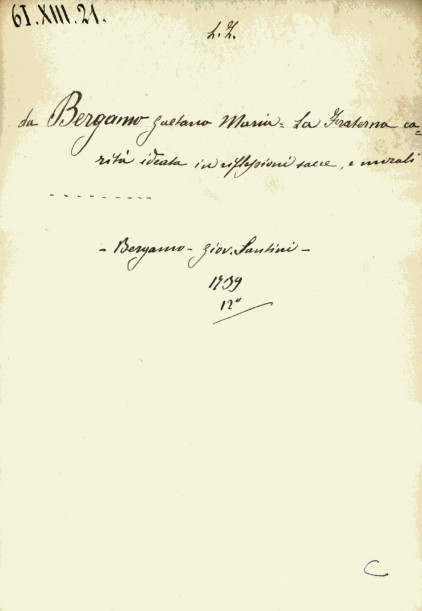 61.XIII.21.
L.Z.
da Bergamo Gaetano Maria = La Fraterna ca=
rità ideata in riflessioni sacre, e morali
- - - - - - - - -
- Bergamo - Giov. Santini -
1739
12°
C